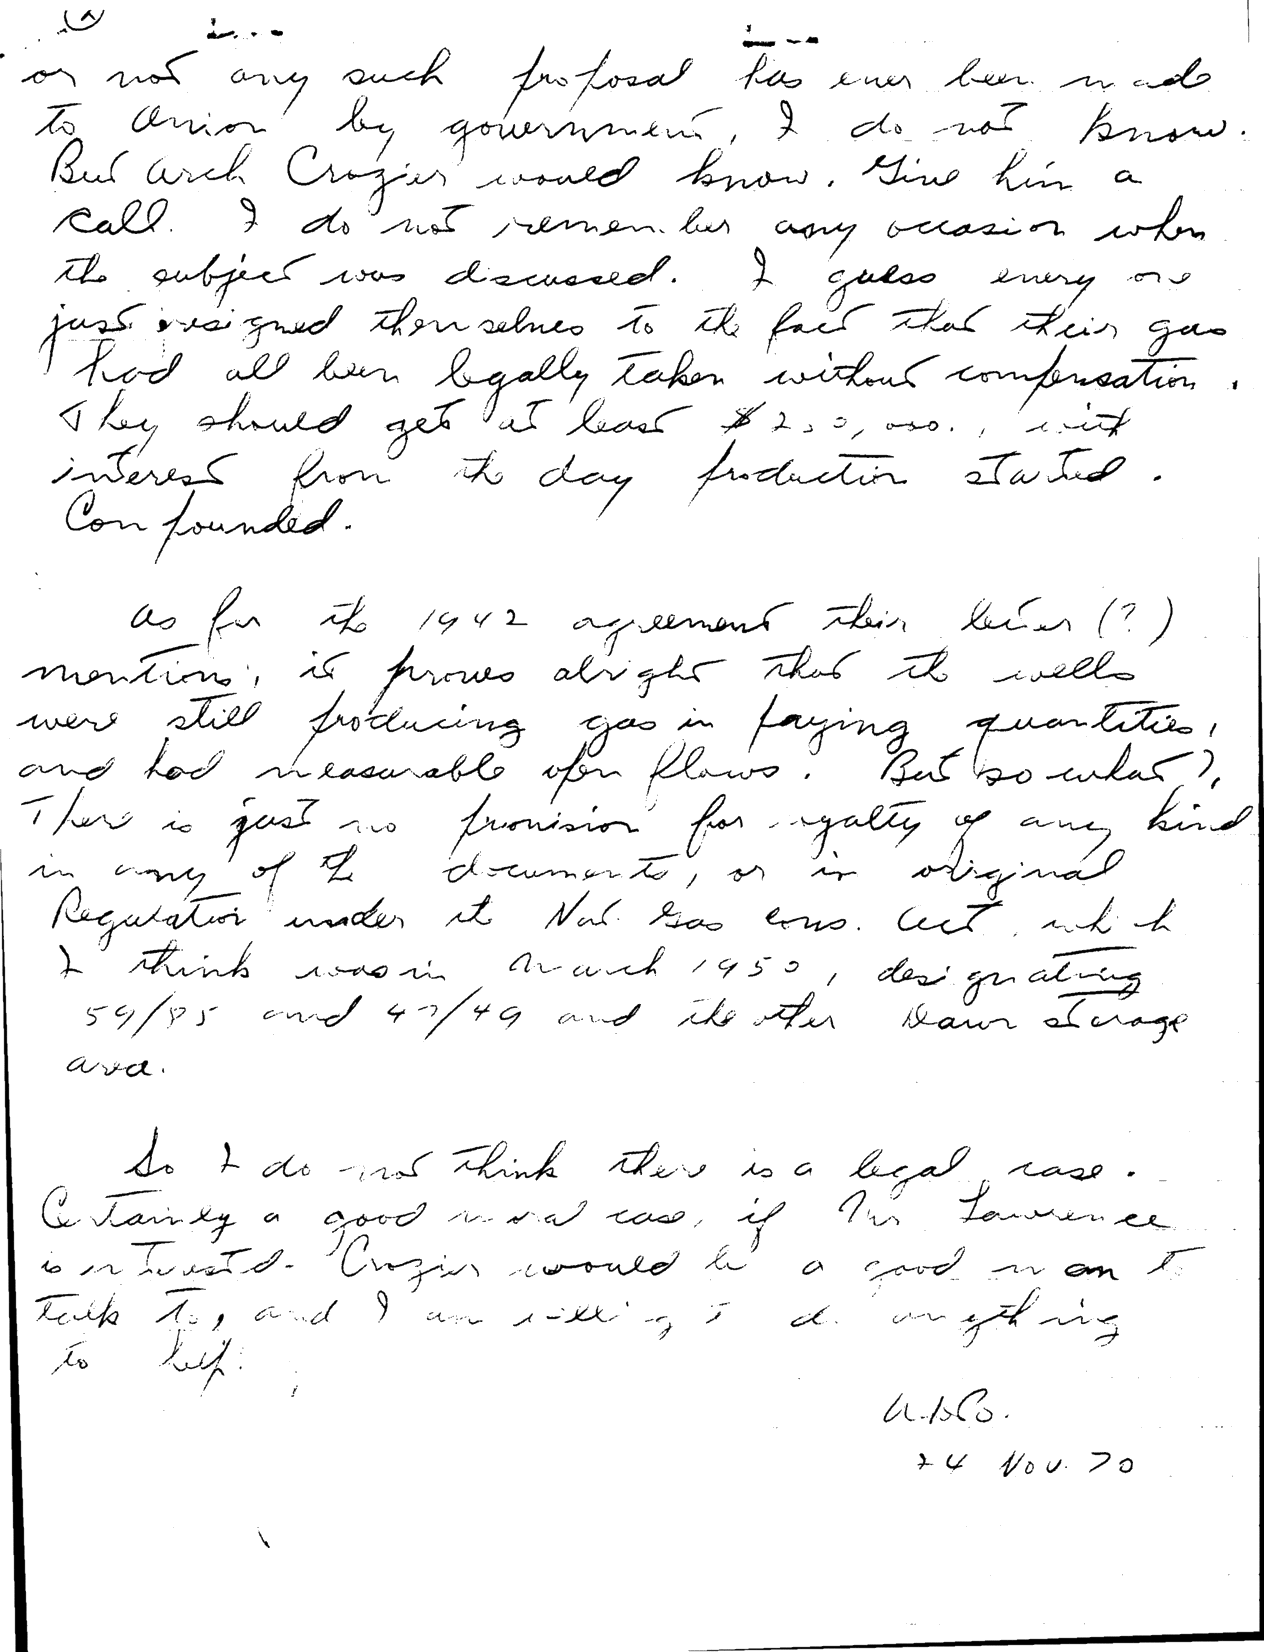 or not any such proposal has ever been made
to Union by government, I do not know.
But Arch Crozier would know. Give him a
call. I do not remember any occasion when
the subject was discussed. I guess every one
just resigned themselves to the fact that their gas
had all been legally taken without compensation.
They should get at least $200,000., with
interest from the day production started.
Compounded.
As for the 1942 agreement their letter (?)
mentions, it proves alright that the wells
were still producing gas in paying quantities,
and had measurable open flows. But so what?,
There is just no provision for royalty of any kind
in any of the documents, or in original
Regulation under the Nat. Gas Cons. Act, which
I think was in March 1950, designating
59/85 and 47/49 and the other Dawn storage
area.
So I do not think there is a legal case.
Certainly a good moral case, if Mr Lawrence
is interested. Crozier would be a good man to
talk to, and I am willing to do anything
to help.
24 Nov. 70